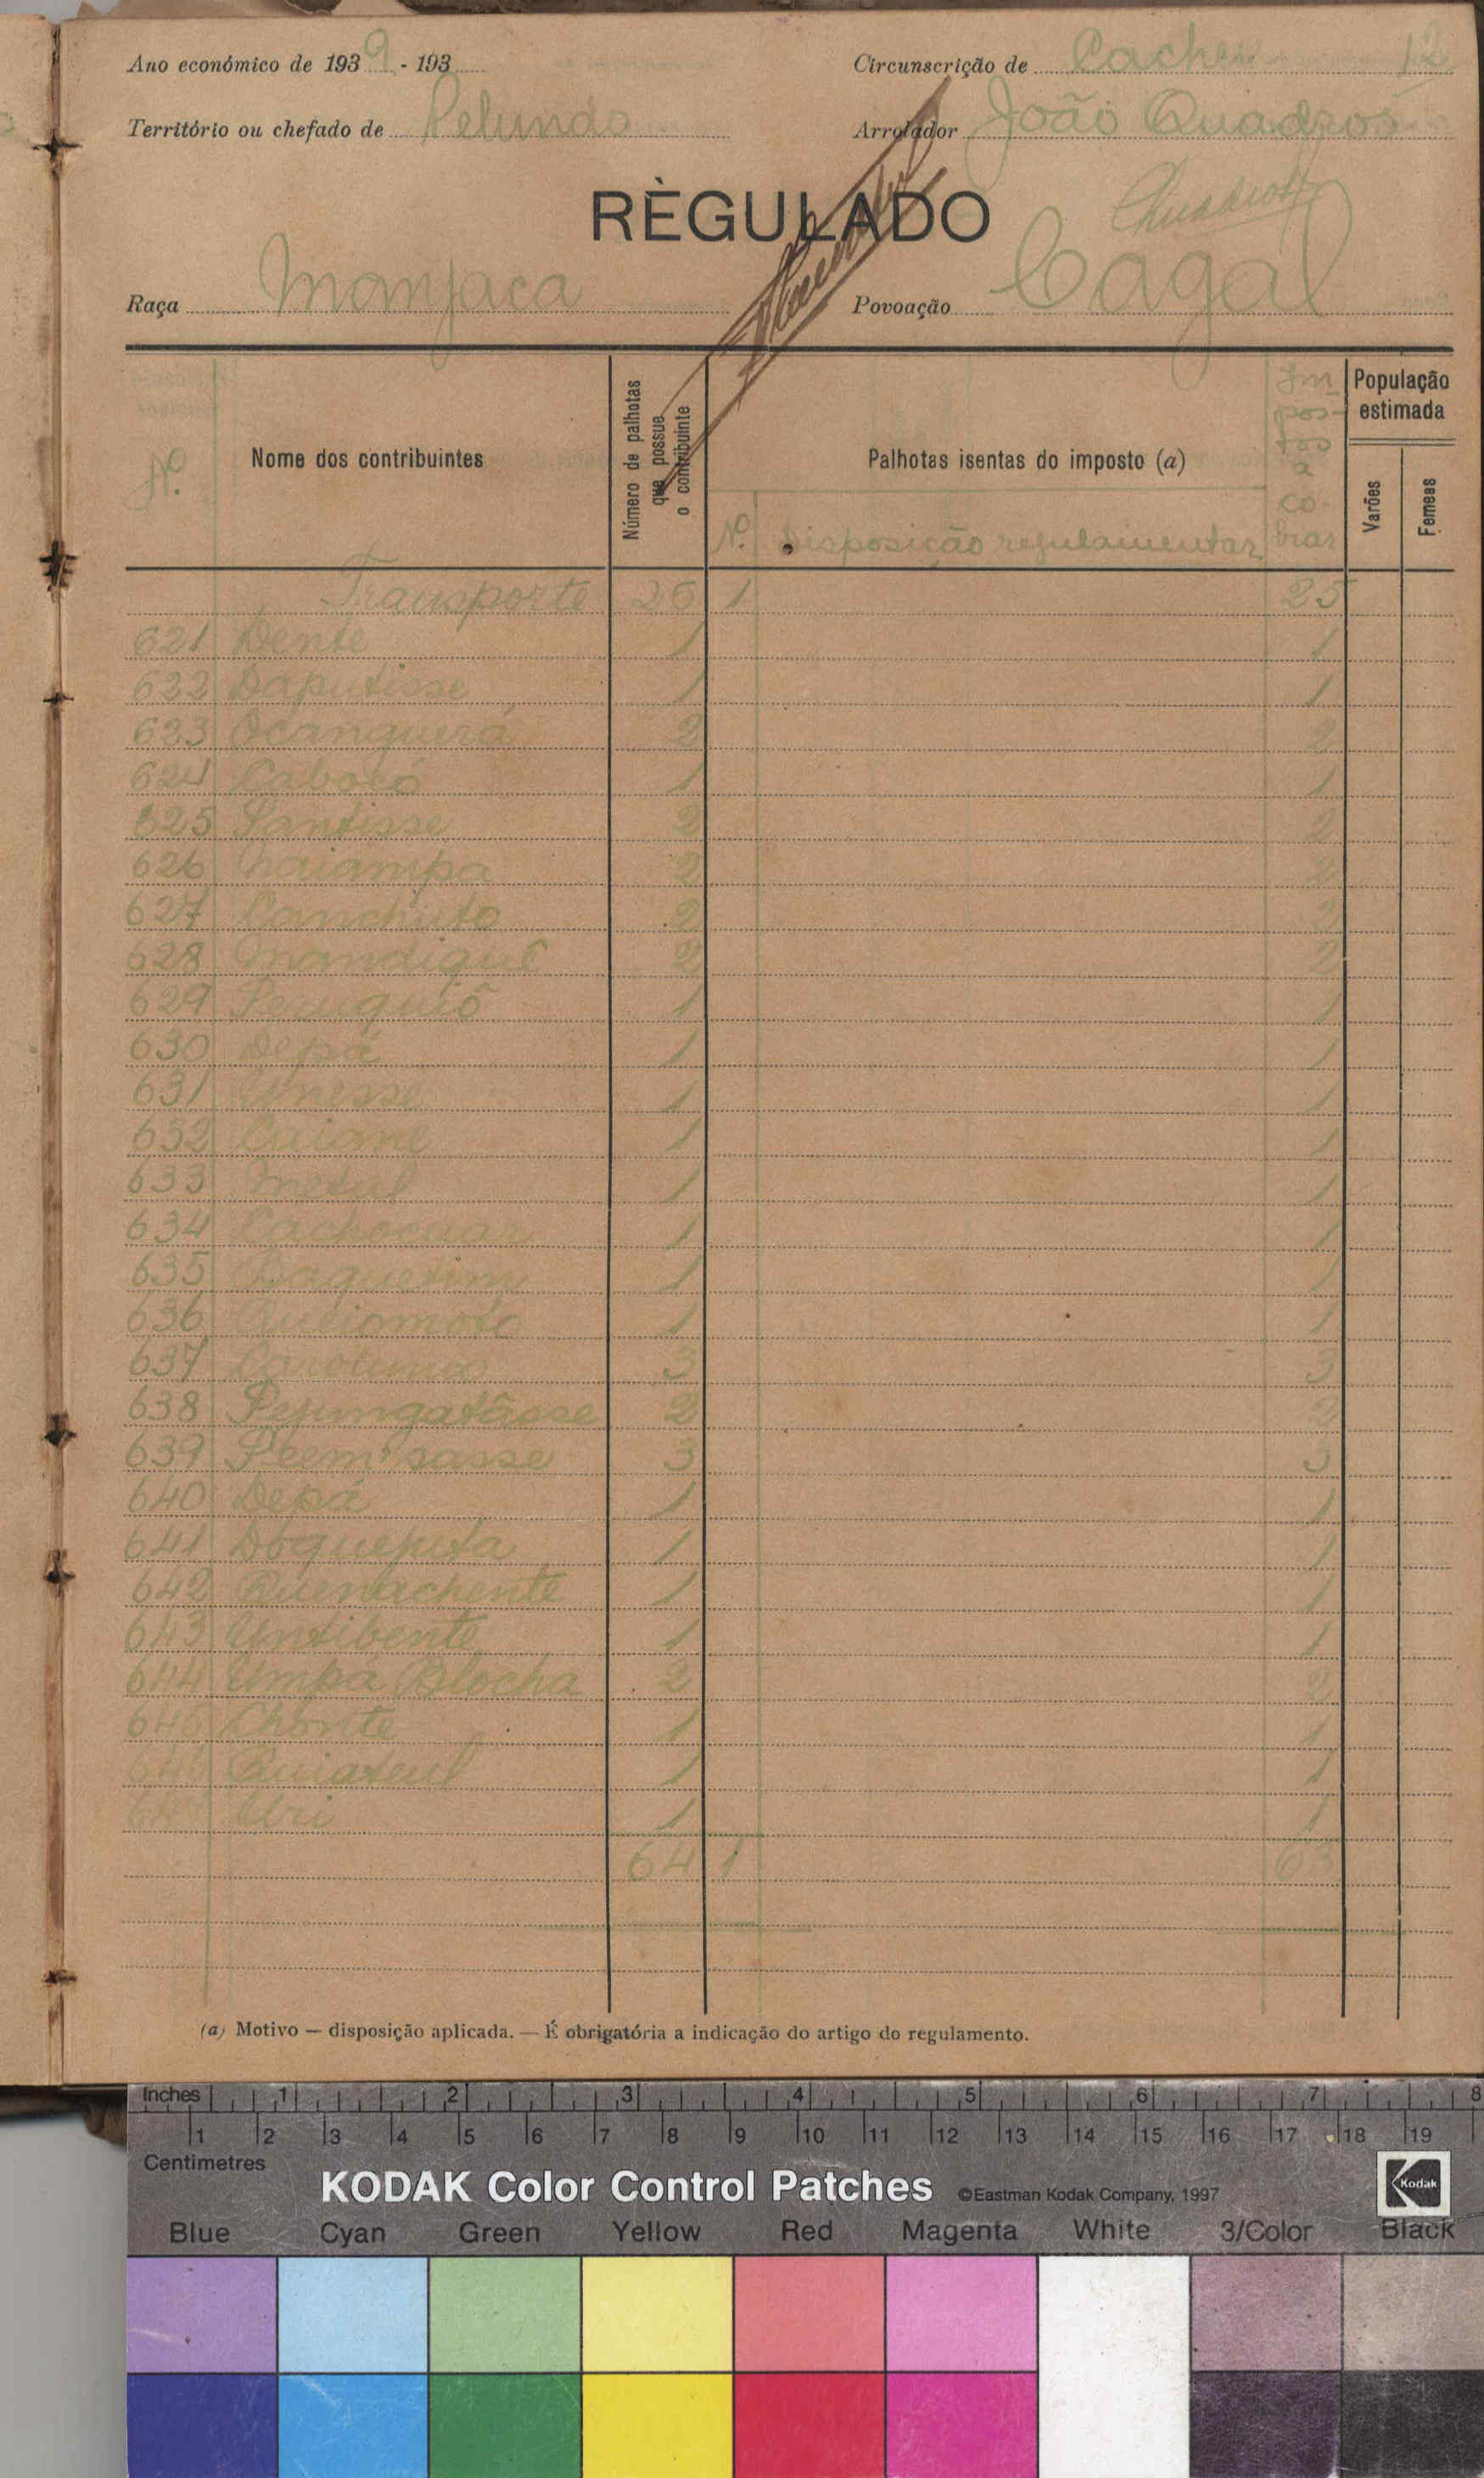 Ano económico de 1939 - 193
Circunscrição de Cacheu 12
Território ou chefado de Pelundo
Arrolador João Quadros
RÈGULADO
Raça Manjaca
Povoação Cagal
Nº Nome dos contribuintes Número de palhotas que possue o contribuinte Palhotas isentas do imposto (a) Impostos a cobrar População estimada
Nº Disposição regulamentar Varões Femeas
Transporte 26 1 25
621 Dente 1 1
622 Daputisse 1 1
623 Ocanguerá 2 2
624 Cabocó 1 1
625 Santisse 2 2
626 2 2
627 Canchuto 2 2
628 Mandiguê 2 2
629 1 1
630 Depá 1 1
631 Unesse 1 1
632 Quiane 1 1
633 Metul 1 1
634 1 1
635 1 1
636 1 1
637 3 3
638 2 2
639 3 3
640 Depá 1 1
641 Doqueputa 1 1
642 Quenachente 1 1
643 Untibente 1 1
644 Umpá Blocha 2 2
645 Chonte 1 1
646 Quiateul 1 1
647 Ubri 1 1
64 1 63
(a) Motivo — disposição aplicada. — É obrigatória a indicação do artigo do regulamento.
Inches 1 2 3 4 5 6 7 8
1 2 3 4 5 6 7 8 9 10 11 12 13 14 15 16 17 18 19
Centimetres
KODAK Color Control Patches ©Eastman Kodak Company, 1997 Kodak
Blue Cyan Green Yellow Red Magenta White 3/Color Black